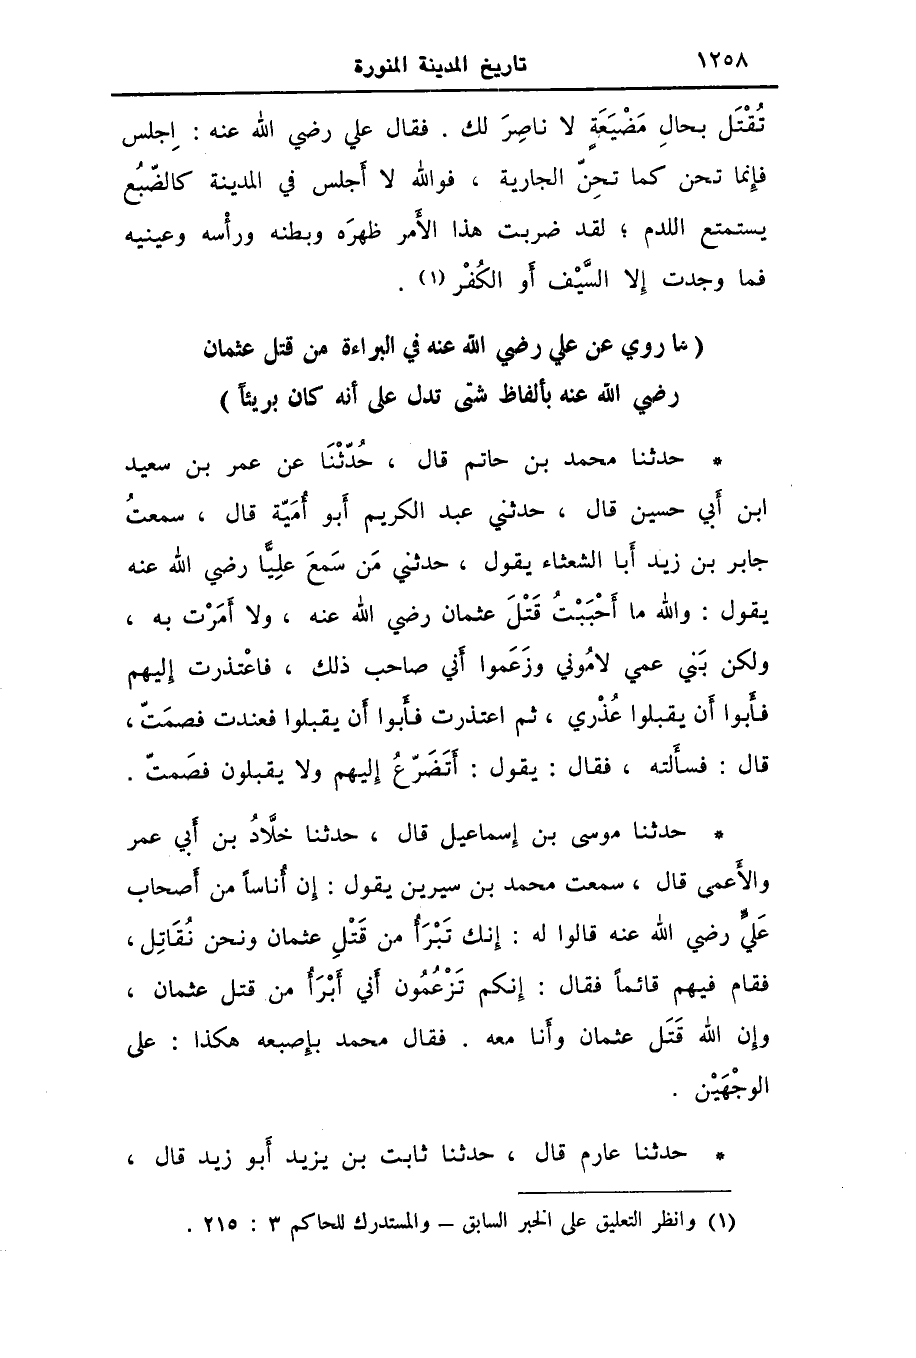 ١٢٥٨ تاريخ المدينة المنورة
تُقْتَل بحالِ مَضْيَعَةٍ لا ناصِرَ لك . فقال علي رضي الله عنه : اِجلس
فإنما تحن كما تحنّ الجارية ، فوالله لا أجلس في المدينة كالضّبُع
يستمتع اللدم ؛ لقد ضربت هذا الأمر ظهرَه وبطنه ورأْسه وعينيه
فما وجدت إلا السَّيْف أو الكُفْر (١) .
( ما روي عن علي رضي الله عنه في البراءة من قتل عثمان
رضي الله عنه بألفاظ شتّى تدل على أنه كان بريئاً )
* حدثنا محمد بن حاتم قال ، حُدّثْنَا عن عمر بن سعيد
ابن أبي حسين قال ، حدثني عبد الكريم أبو أُمَيّة قال ، سمعتُ
جابر بن زيد أبا الشعثاء يقول ، حدثني مَن سَمعَ عليًّا رضي الله عنه
يقول : والله ما أَحْبَبْتُ قَتْلَ عثمان رضي الله عنه ، ولا أَمَرْت به ،
ولكن بَني عمي لامُوني وزَعَموا أني صاحب ذلك ، فاعْتذرت إليهم
فأَبوا أن يقبلوا عُذْري ، ثم اعتذرت فأَبوا أن يقبلوا فعندت فصمَتّ ،
قال : فسأَلته ، فقال : يقول : أَتَضَرّعُ إليهم ولا يقبلون فصَمتّ .
* حدثنا موسى بن إسماعيل قال ، حدثنا خلَّادُ بن أبي عمر
والأَعمى قال ، سمعت محمد بن سيرين يقول : إن أُناساً من أَصحاب
عَليٍّ رضي الله عنه قالوا له : إنك تَبْرَأُ من قَتْلِ عثمان ونحن نُقَاتِل ،
فقام فيهم قائماً فقال : إنكم تَزْعُمُون أني أَبْرَأُ من قتل عثمان ،
وإن الله قَتَل عثمان وأَنا معه . فقال محمد بإصبعه هكذا : على
الوجْهَيْن .
* حدثنا عارم قال ، حدثنا ثابت بن يزيد أبو زيد قال ،
(١) وانظر التعليق على الخبر السابق – والمستدرك للحاكم ٣ : ٢١٥ .